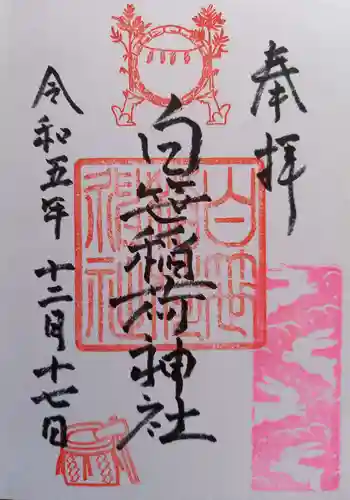 奉拝
白笹稲荷神社
令和五年 十二月十七日
白笹稲荷神社